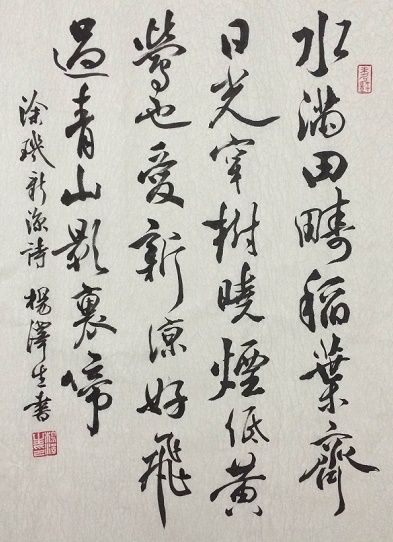 水满田畴稻葉齊
日光穿樹曉煙低黄
鶯也愛新涼好飛
過青山影裏啼
涂璣新涼詩 楊澤生書